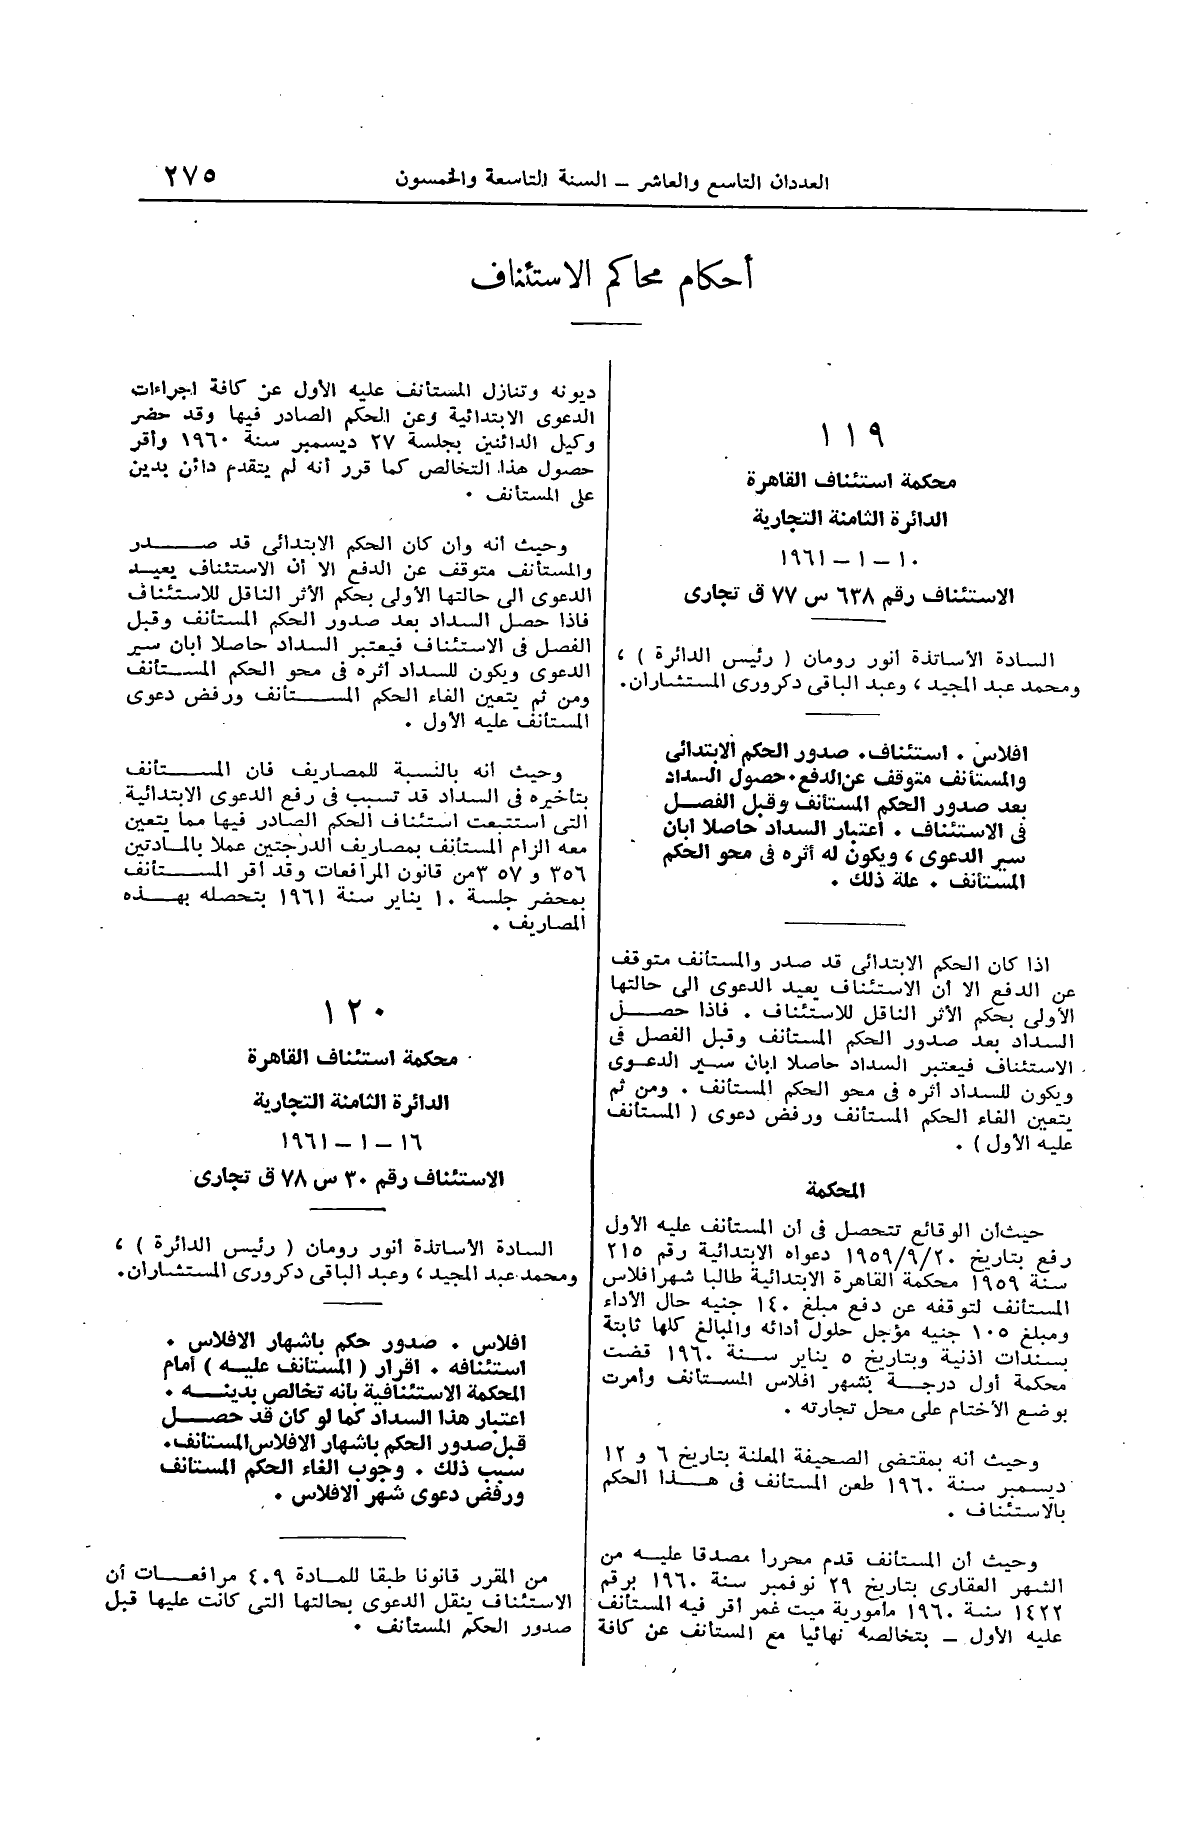 العددان التاسع والعاشر – السنة التاسعة والخمسون
٢٧٥
أحكام محاكم الاستئناف
١١٩
محكمة استئناف القاهرة
الدائرة الثامنة التجارية
١٠ – ١ – ١٩٦١
الاستئناف رقم ٦٣٨ س ٧٧ ق تجارى
السادة الأساتذة أنور رومان ( رئيس الدائرة ) ،
ومحمد عبد المجيد ، وعبد الباقى دكرورى المستشاران.
افلاس . استئناف. صدور الحكم الابتدائى
والمستأنف متوقف عن الدفع. حصول السداد
بعد صدور الحكم المستأنف وقبل الفصل
فى الاستئناف . اعتبار السداد حاصلا ابان
سير الدعوى ، ويكون له أثره فى محو الحكم
المستأنف . علة ذلك .
اذا كان الحكم الابتدائى قد صدر والمستأنف متوقف
عن الدفع الا أن الاستئناف يعيد الدعوى الى حالتها
الأولى بحكم الأثر الناقل للاستئناف . فاذا حصل
السداد بعد صدور الحكم المستأنف وقبل الفصل فى
الاستئناف فيعتبر السداد حاصلا ابان سير الدعوى
ويكون للسداد أثره فى محو الحكم المستأنف . ومن ثم
يتعين الغاء الحكم المستأنف ورفض دعوى ( المستأنف
عليه الأول ) .
المحكمة
حيث ان الوقائع تتحصل فى أن المستأنف عليه الأول
رفع بتاريخ ١٩٥٩/٩/٢٠ دعواه الابتدائية رقم ٢١٥
سنة ١٩٥٩ محكمة القاهرة الابتدائية طالبا شهر افلاس
المستأنف لتوقفه عن دفع مبلغ ١٤٠ جنيه حال الأداء
ومبلغ ١٠٥ جنيه مؤجل حلول أدائه والمبالغ كلها ثابتة
بسندات اذنية وبتاريخ ٥ يناير سنة ١٩٦٠ قضت
محكمة أول درجة بشهر افلاس المستأنف وأمرت
بوضع الأختام على محل تجارته .
وحيث أنه بمقتضى الصحيفة المعلنة بتاريخ ٦ و ١٢
ديسمبر سنة ١٩٦٠ طعن المستأنف فى هذا الحكم
بالاستئناف .
وحيث أن المستأنف قدم محررا مصدقا عليه من
الشهر العقارى بتاريخ ٢٩ نوفمبر سنة ١٩٦٠ برقم
١٤٢٢ سنة ١٩٦٠ مأمورية ميت غمر أقر فيه المستأنف
عليه الأول – بتخالصه نهائيا مع المستأنف عن كافة
ديونه وتنازل المستأنف عليه الأول عن كافة اجراءات
الدعوى الابتدائية وعن الحكم الصادر فيها وقد حضر
وكيل الدائنين بجلسة ٢٧ ديسمبر سنة ١٩٦٠ وأقر
حصول هذا التخالص كما قرر أنه لم يتقدم دائن بدين
على المستأنف .
وحيث أنه وان كان الحكم الابتدائى قد صدر
والمستأنف متوقف عن الدفع الا أن الاستئناف يعيد
الدعوى الى حالتها الأولى بحكم الأثر الناقل للاستئناف
فاذا حصل السداد بعد صدور الحكم المستأنف وقبل
الفصل فى الاستئناف فيعتبر السداد حاصلا ابان سير
الدعوى ويكون للسداد أثره فى محو الحكم المستأنف
ومن ثم يتعين الغاء الحكم المستأنف ورفض دعوى
المستأنف عليه الأول .
وحيث أنه بالنسبة للمصاريف فان المستأنف
بتأخيره فى السداد قد تسبب فى رفع الدعوى الابتدائية
التى استتبعت استئناف الحكم الصادر فيها مما يتعين
معه الزام المستأنف بمصاريف الدرجتين عملا بالمادتين
٣٥٦ و ٣٥٧ من قانون المرافعات وقد أقر المستأنف
بمحضر جلسة ١٠ يناير سنة ١٩٦١ بتحمله بهذه
المصاريف .
١٢٠
محكمة استئناف القاهرة
الدائرة الثامنة التجارية
١٦ – ١ – ١٩٦١
الاستئناف رقم ٣٠ س ٧٨ ق تجارى
السادة الأساتذة أنور رومان ( رئيس الدائرة ) ،
ومحمد عبد المجيد ، وعبد الباقى دكرورى المستشاران.
افلاس . صدور حكم باشهار الافلاس .
استئنافه . اقرار ( المستأنف عليه ) أمام
المحكمة الاستئنافية بأنه تخالص بدينه .
اعتبار هذا السداد كما لو كان قد حصل
قبل صدور الحكم باشهار الافلاس المستأنف.
سبب ذلك . وجوب الغاء الحكم المستأنف
ورفض دعوى شهر الافلاس .
من المقرر قانونا طبقا للمادة ٤٠٩ مرافعات أن
الاستئناف ينقل الدعوى بحالتها التى كانت عليها قبل
صدور الحكم المستأنف .